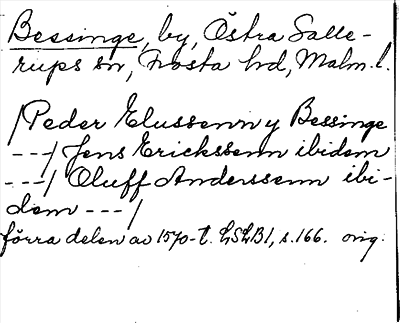 Bessinge, by, Östra Salle-
rups sn, Frosta hd, Malm. l.
/Peder Clussenn y Bessinge
---/ Jens Erickssenn ibidem
---/ Oluff Anderssenn ibi-
dem ---/
förra delen av 1570-t. LSLB1, s. 166. orig.